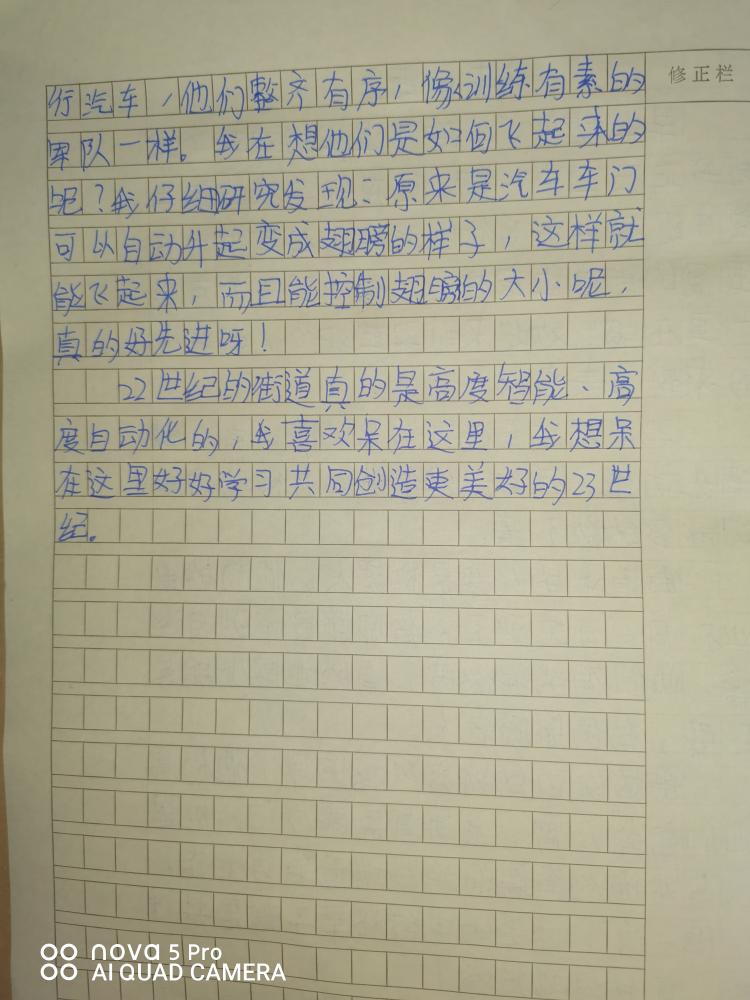 修正栏
行汽车，他们整齐有序，像训练有素的
军队一样。我在想他们是如何飞起来的
呢？我仔细研究发现：原来是汽车车门
可以自动升起变成翅膀的样子，这样就
能飞起来，而且能控制翅膀的大小呢，
真的好先进呀！
22世纪的街道真的是高度智能、高
度自动化的，我喜欢呆在这里，我想呆
在这里好好学习共同创造更美好的23世
纪。
nova 5 Pro
AI QUAD CAMERA